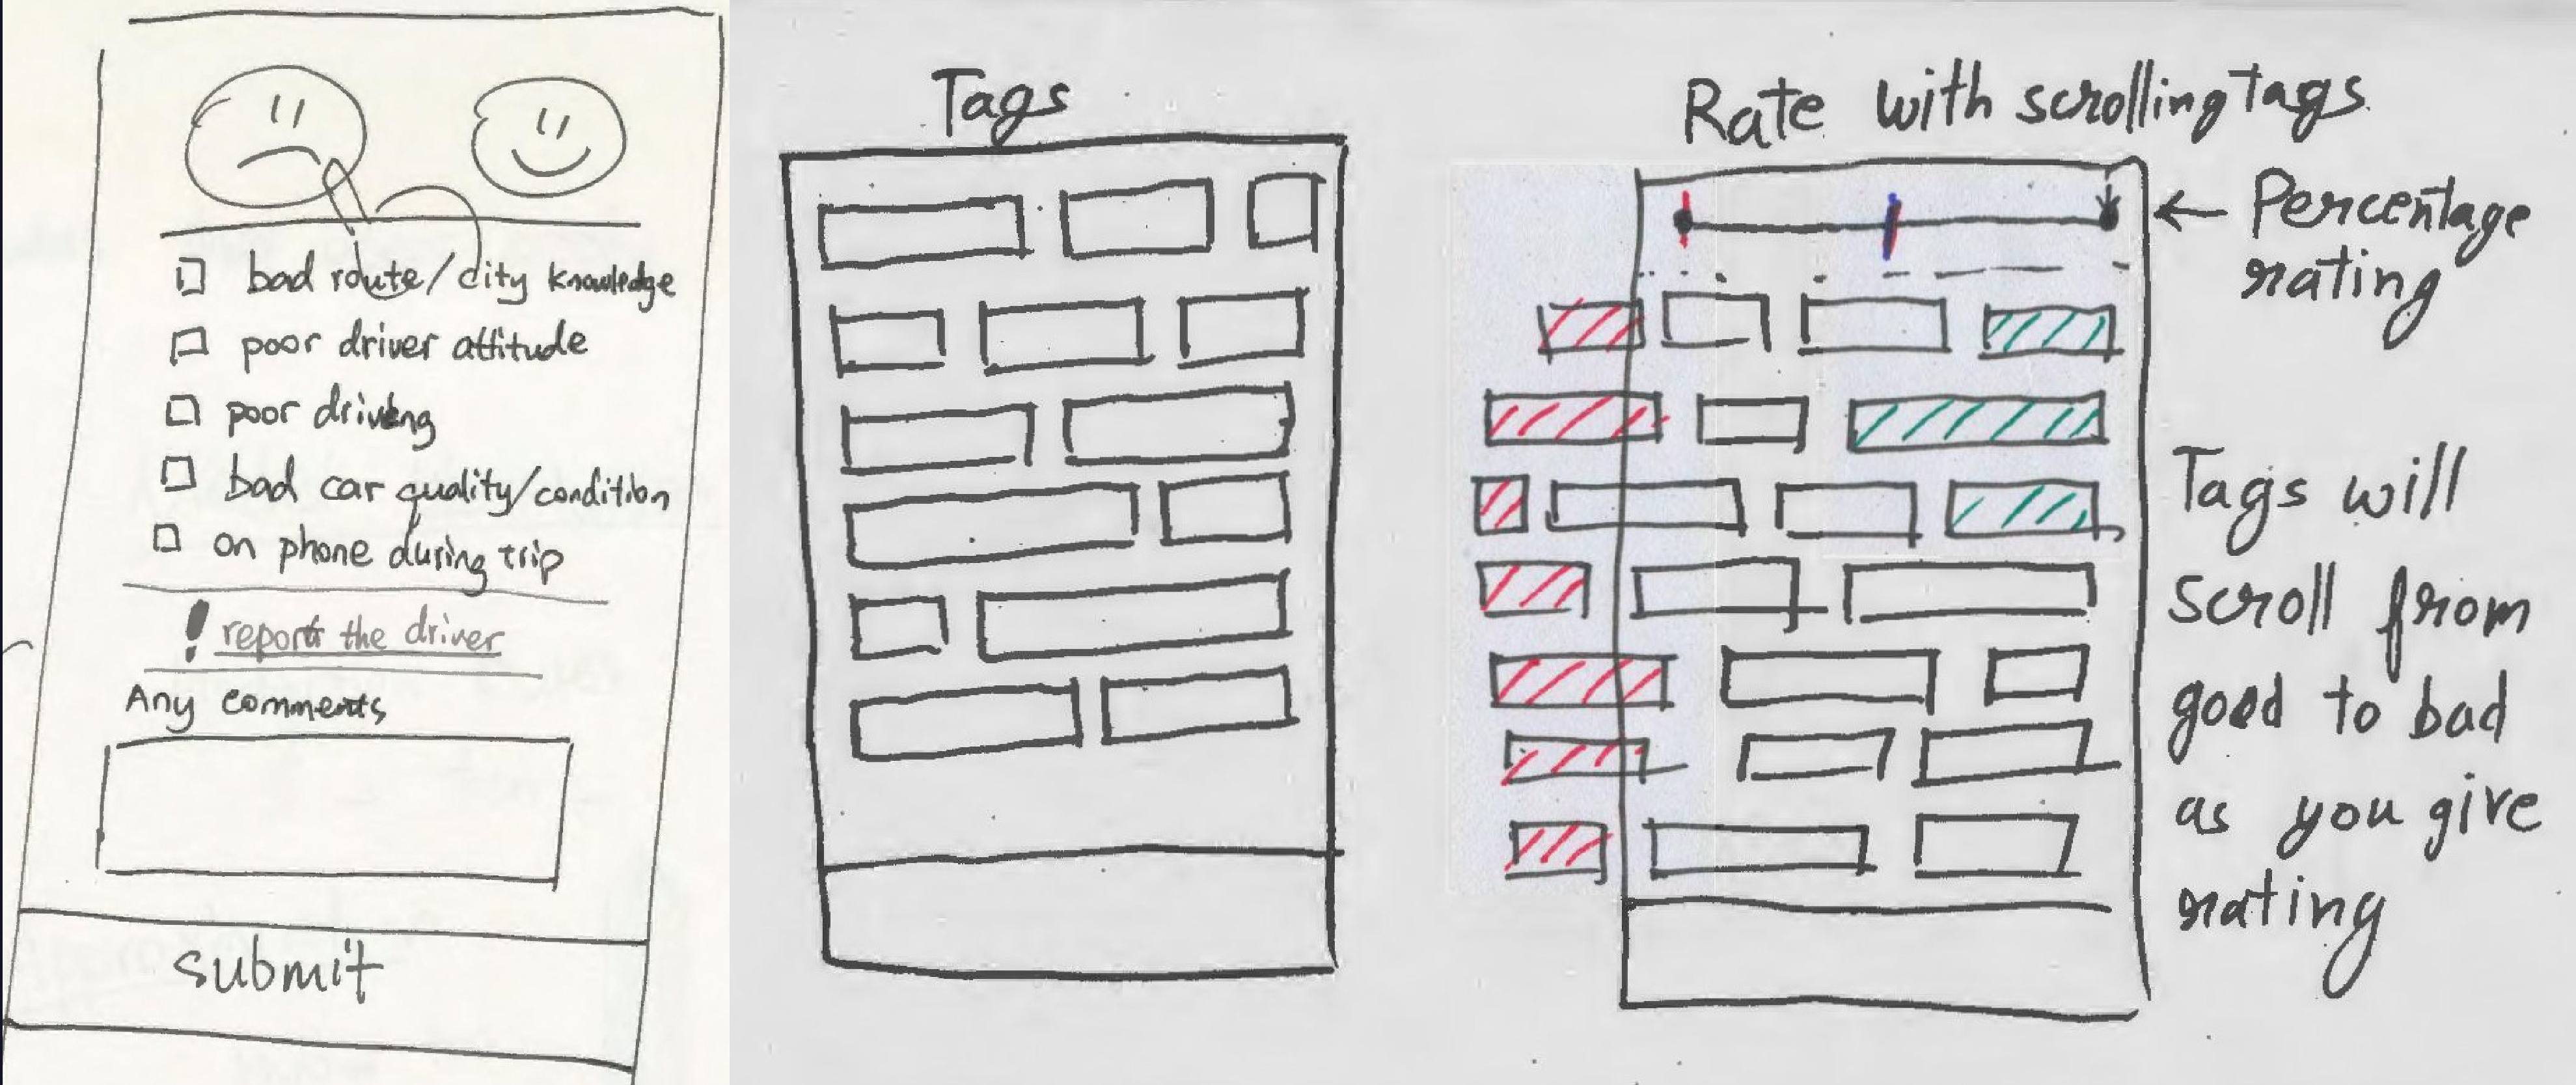 bad route/city knowledge
poor driver attitude
poor driving
bad car quality/condition
on phone during trip
! report the driver
Any comments
submit
Tags
Rate with scrolling tags
← Percentage
rating
Tags will
scroll from
good to bad
as you give
rating